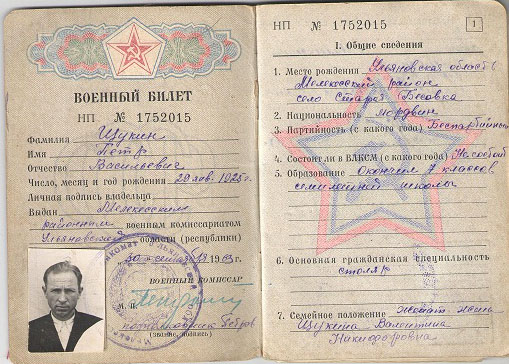 ВОЕННЫЙ БИЛЕТ
НП № 1752015
Фамилия Щукин
Имя Петр
Отчество Васильевич
Число, месяц и год рождения 1925 г.
Личная подпись владельца
Выдан Мелекесским
районным военным комиссариатом
Ульяновской области (республики)
30 сентября 1963 г.
ВОЕННЫЙ КОМИССАР
М. П.
подполковник Петров
(звание, подпись)
НП № 1752015
1
I. Общие сведения
1. Место рождения Ульяновская область
Мелекесский район
село Старая Бесовка
2. Национальность мордвин
3. Партийность (с какого года) Беспартийный
4. Состоял ли в ВЛКСМ (с какого года) Не состоял
5. Образование Окончил 7 классов
семилетней школы
6. Основная гражданская специальность
столяр
7. Семейное положение женат жена
Щукина Валентина
Никифоровна